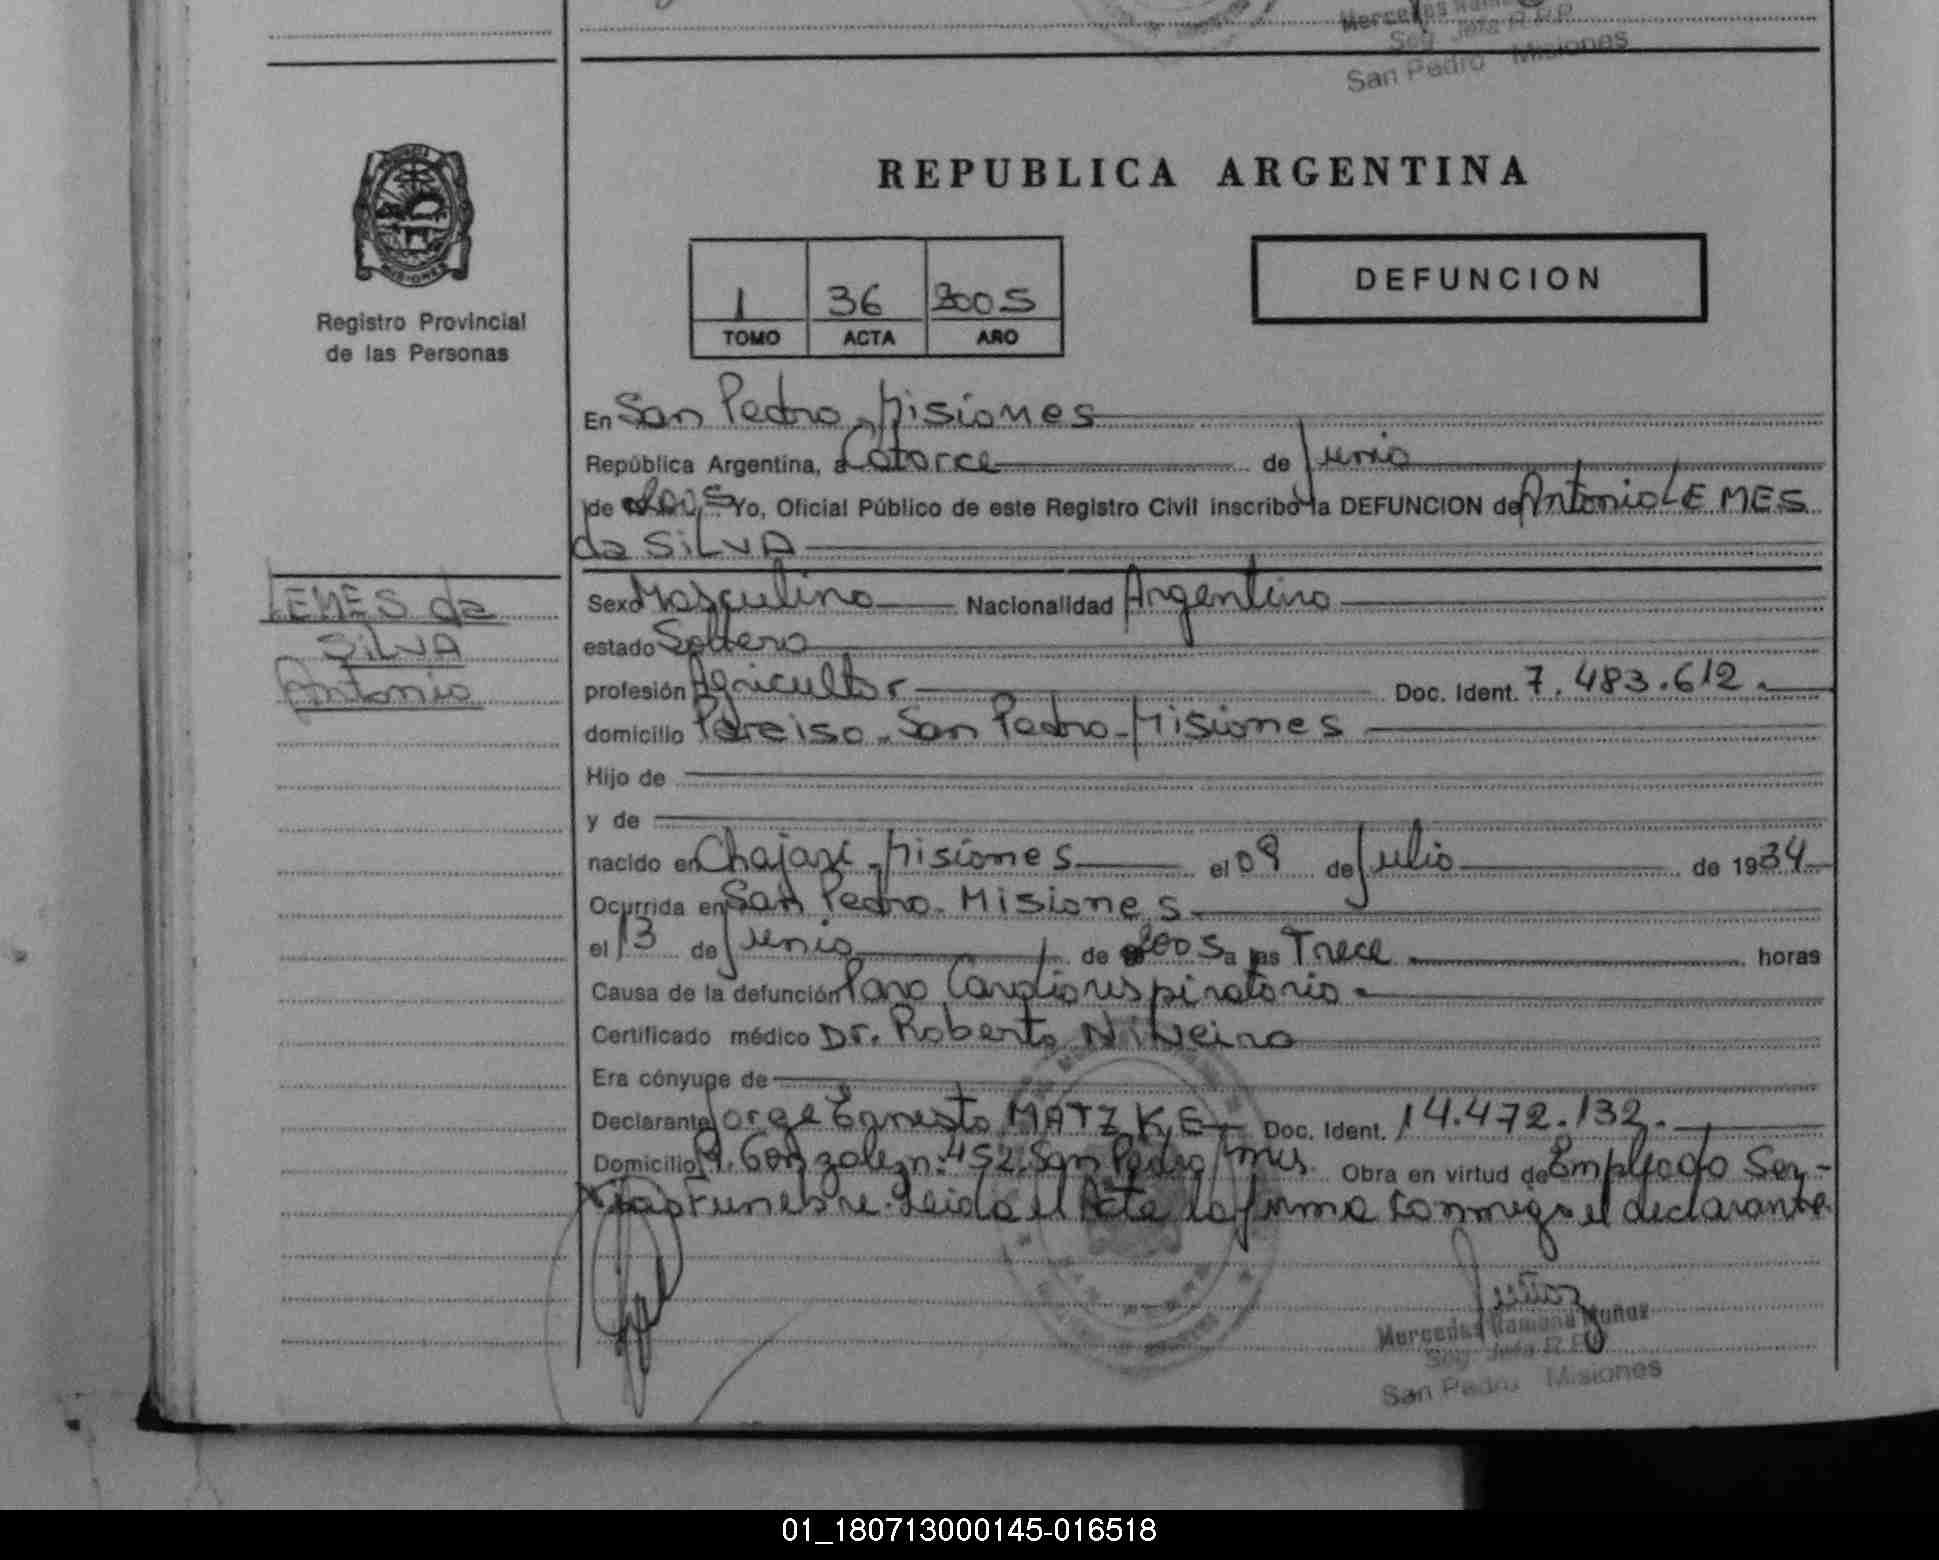 Mercedes Ramona
Seg Jefa R.P.P.
San Pedro Misiones
PROVINCIA
MISIONES
Registro Provincial
de las Personas
REPUBLICA ARGENTINA
DEFUNCION
1 36 2005
TOMO ACTA AÑO
En San Pedro, Misiones
República Argentina, a Catorce de Junio
de 2005 Yo, Oficial Público de este Registro Civil inscribo la DEFUNCION de Antonio LEMES
da SILVA
LEMES da
SILVA
Antonio
Sexo Masculino Nacionalidad Argentino
estado Soltero
profesión Agricultor Doc. Ident. 7.483.612.
domicilio Paraiso - San Pedro - Misiones
Hijo de
y de
nacido en Chajari, Misiones el 09 de Julio de 1934
Ocurrida en San Pedro - Misiones
el 13 de Junio de 2005 a las Trece horas
Causa de la defunción Paro Cardiorespiratorio
Certificado médico Dr. Roberto
Era cónyuge de
Declarante Jorge Ernesto MATZKE Doc. Ident. 14.472.132.
Domicilio R. Gonzalez n: 452. San Pedro Mnes. Obra en virtud de Empleado Ser-
vicio Funebre. Leida el Acta la firma conmigo el declarante.
Muñoz
Mercedes Ramona Muñoz
Seg Jefa R.P.P.
San Pedro Misiones
01_180713000145-016518